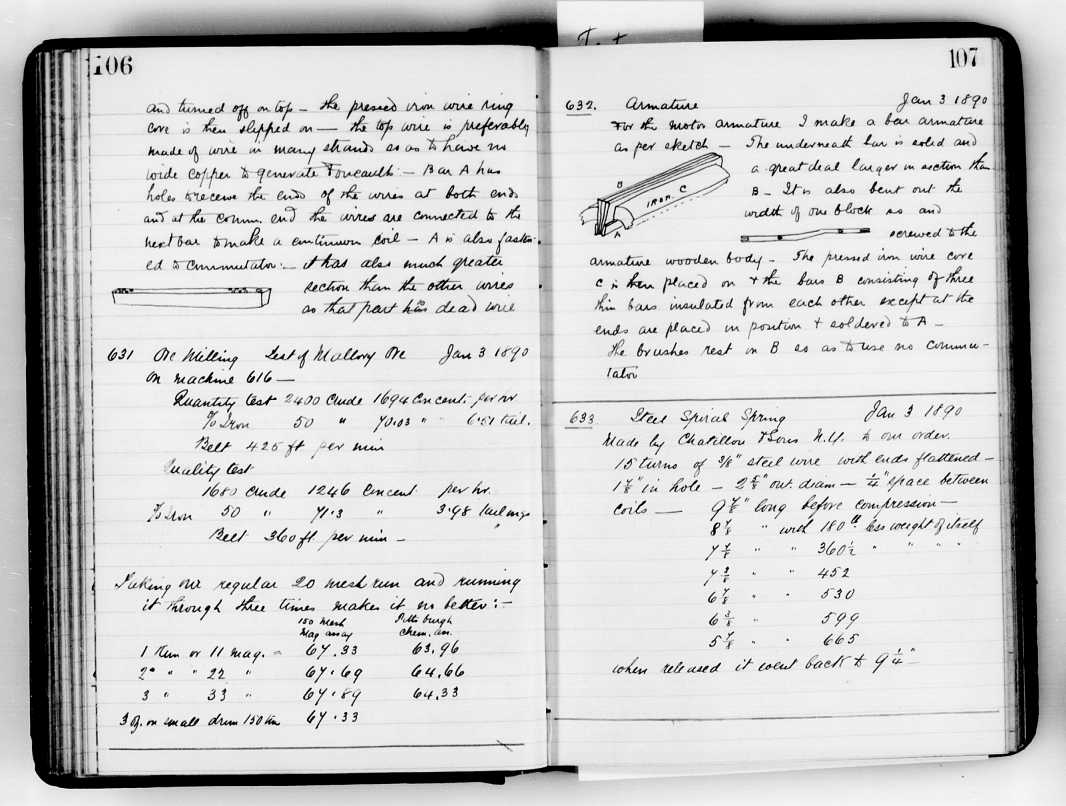 106
and turned off on top — the pressed iron wire ring
core is then slipped on — the top wire is preferably
made of wire in many strands so as to have no
wide copper to generate Foucault — Bar A has
holes to receive the ends of the wires at both ends
and at the comm. end the wires are connected to the
next bar to make a continuous coil — A is also fasten-
ed to commutator: — it has also much greater
section than the other wires
as that part has dead wire
631 Ore Milling Test of Mallory Ore Jan 3 1890
on machine 616 —
Quantity test 2400 Crude 1694 Concent. per hr
% Iron 50 " 70.03 " 6.51 tail.
Belt 425 ft per min
Quality test
1680 Crude 1246 Concent per hr.
% Iron 50 " 71.3 " 3.98 tailings
Belt 360 ft per min —
Taking our regular 20 mesh run and running
it through three times makes it no better: —
150 mesh Pittsburgh
Mag assay chem. an.
1 Run or 11 mag. = 67.33 63.96
2d " " 22 " 67.69 64.66
3 " 33 " 67.89 64.33
on small drum 67.33
107
632. Armature Jan 3 1890
For the motor armature I make a bar armature
as per sketch — The underneath bar is solid and
a great deal larger in section than
B — It is also bent out the
width of one block so and
B
C
IRON.
A
screwed to the
armature wooden body — The pressed iron wire core
C is then placed on + the bars B consisting of three
thin bars insulated from each other except at the
ends are placed in position + soldered to A —
The brushes rest on B so as to use no commu-
tator
633 Steel Spiral Spring Jan 3 1890
Made by Chatillon & Sons N.Y. to our order.
15 turns of 3/8" steel wire with ends flattened —
1 7/8" in hole — 2 5/8" out. diam — 1/4" space between
coils — 9 7/8" long before compression —
8 7/8 " with 180 lb. less weight of itself
360 1/2 " " " "
" " 452
6 7/8 " " 530
6 3/8 " 599
5 7/8 " " 665
when released it went back to 9 1/4" —